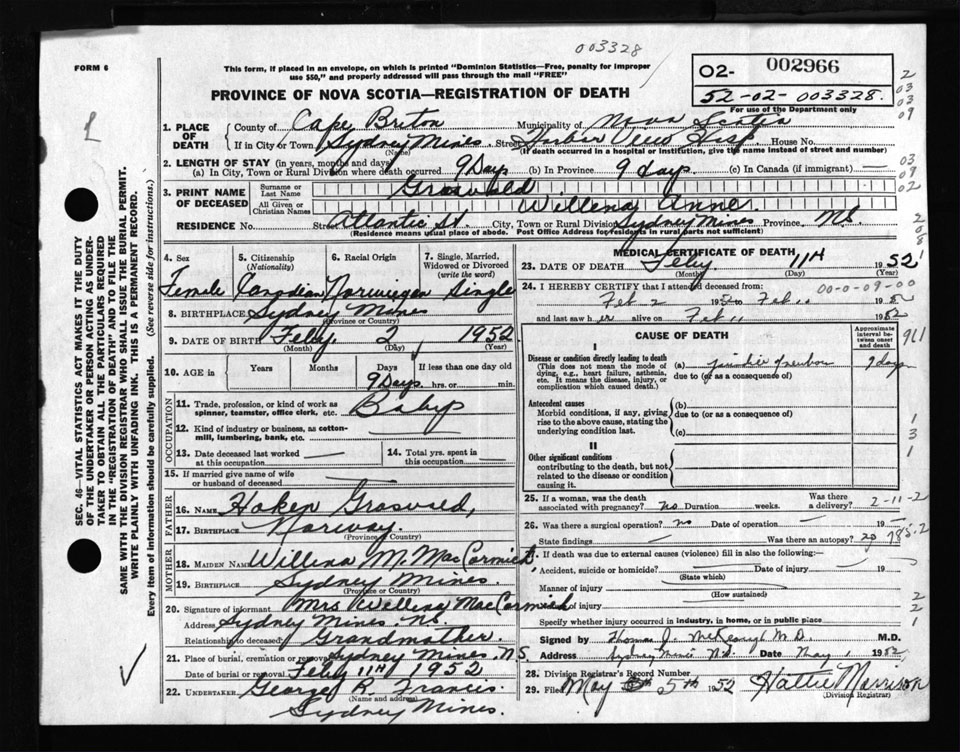 003328
FORM 6
This form, if placed in an envelope, on which is printed "Dominion Statistics—Free, penalty for improper
use $50," and properly addressed will pass through the mail "FREE"
PROVINCE OF NOVA SCOTIA—REGISTRATION OF DEATH
02- 002966
52-02-003328.
For use of the Department only
2
03
03
09
03
09
02
2
0
8
1. PLACE OF DEATH County of Cape Breton Municipality of Nova Scotia
If in City or Town Sydney Mines Street Harbor View Hosp. House No.
(Name) (If death occurred in a hospital or institution, give the name instead of street and number)
2. LENGTH OF STAY (in years, months and days)
(a) In City, Town or Rural Division where death occurred 9 Days (b) In Province 9 days (c) In Canada (if immigrant)
3. PRINT NAME OF DECEASED Surname or Last Name Grosvold
All Given or Christian Names Willena Anne
RESIDENCE No. Street Atlantic St. City, Town or Rural Division Sydney Mines Province N.S.
(Residence means usual place of abode. Post Office Address for residents in rural parts not sufficient)
4. Sex Female
5. Citizenship (Nationality) Canadian
6. Racial Origin Norwiegen
7. Single, Married, Widowed or Divorced (write the word) Single
8. BIRTHPLACE Sydney Mines
(Province or Country)
9. DATE OF BIRTH Feby. 2 1952
(Month) (Day) (Year)
10. AGE in Years Months Days If less than one day old
9 Days hrs. or min.
OCCUPATION
11. Trade, profession, or kind of work as spinner, teamster, office clerk, etc. Baby
12. Kind of industry or business, as cotton-mill, lumbering, bank, etc.
13. Date deceased last worked at this occupation —
14. Total yrs. spent in this occupation
15. If married give name of wife or husband of deceased
FATHER
16. Name Haken Grosvold,
17. BIRTHPLACE Norway.
(Province or Country)
MOTHER
18. MAIDEN NAME Willena M. MacCormick,
19. BIRTHPLACE Sydney Mines.
(Province or Country)
20. Signature of informant Mrs Willena MacCormick
Address Sydney Mines N.S.
Relationship to deceased Grandmother.
21. Place of burial, cremation or removal Sydney Mines, N.S.
Feby 11th 1952
22. UNDERTAKER George K. Francis.
(Name and address)
Sydney Mines.
MEDICAL CERTIFICATE OF DEATH
23. DATE OF DEATH Feby. 11th 1952
(Month) (Day) (Year)
24. I HEREBY CERTIFY that I attended deceased from: 00-0-09-00
Feb 2 1952 to Feb 11 1952
and last saw her alive on Feb 11 1952
CAUSE OF DEATH
Approximate interval between onset and death
911
I
Disease or condition directly leading to death
(This does not mean the mode of dying, e.g., heart failure, asthenia, etc. It means the disease, injury, or complication which caused death.)
(a)
due to (or as a consequence of)
Antecedent causes
Morbid conditions, if any, giving rise to the above cause, stating the underlying condition last.
(b)
due to (or as a consequence of)
(c)
II
Other significant conditions
contributing to the death, but not related to the disease or condition causing it.
1
3
1
25. If a woman, was the death associated with pregnancy? no Duration weeks. Was there a delivery? 2-11-2
26. Was there a surgical operation? no Date of operation — 19 —
State findings — Was there an autopsy? no 785.2
27. If death was due to external causes (violence) fill in also the following:—
Accident, suicide or homicide? Date of injury — 19
(State which)
Manner of injury
(How sustained)
Nature of injury
Specify whether injury occurred in industry, in home, or in public place
2
2
1
Signed by Thomas J. M.D. M.D.
Address Sydney Mines N.S. Date May 1 1952
28. Division Registrar's Record Number
29. Filed May 5th 1952 Hattie Morrison
(Division Registrar)
SEC. 46—VITAL STATISTICS ACT MAKES IT THE DUTY
OF THE UNDERTAKER OR PERSON ACTING AS UNDER-
TAKER TO OBTAIN ALL THE PARTICULARS REQUIRED
IN THE "REGISTRATION OF DEATH" AND TO FILE THE
SAME WITH THE DIVISION REGISTRAR WHO SHALL ISSUE THE BURIAL PERMIT.
WRITE PLAINLY WITH UNFADING INK. THIS IS A PERMANENT RECORD.
Every item of information should be carefully supplied. (See reverse side for instructions.)